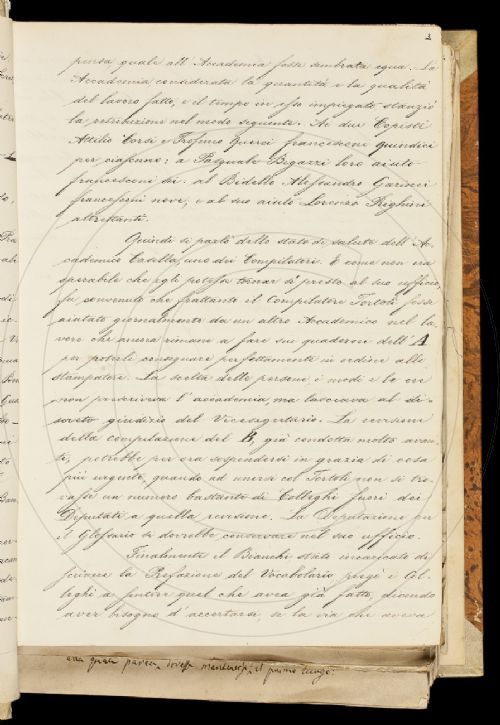 2
pensa quale all'Accademia fosse sembrata equa. La
Accademia considerata la quantità e la qualità
del lavoro fatto, e il tempo in esso impiegato stanziò
la retribuzione nel modo seguente. Ai due Copisti
Attilio Corsi e Trofimo francesconi quindici
per ciascuno: a Pasquale Bigazzi loro aiuto
francesconi sei. al Bidello Alessandro
francesconi nove, e al suo aiuto Lorenzo Righini
altrettanti.
Quindi si parlò dello stato di salute dell'Ac-
cademico Casella, uno dei Compilatori. E come non era
sperabile che egli potesse tornar sì presto al suo ufficio,
fu convenuto che frattanto il Compilatore Tortoli fosse
aiutato giornalmente da un altro Accademico nel la-
voro che ancora rimane a fare sui quaderni dell'A
per poterli consegnare perfettamente in ordine allo
stampatore. La scelta delle persone, i modi e le ore
non prescriveva l'accademia, ma lasciava al di-
screto giudizio del Vicesegretario. La revisione
della compilazione del B, già condotta molto avan-
ti, potrebbe per ora sospendersi in grazia di cosa
più urgente, quando ad unirsi col Tortoli non si tro-
vasse un numero bastante di Colleghi fuori dei
Deputati a quella revisione. La Deputazione per
il Glossario si dovrebbe conservare nel suo ufficio.
Finalmente il Bianchi stato incaricato di
scrivere la Prefazione del Vocabolario pregò i Col-
leghi a sentire quel che avea già fatto, dicendo
aver bisogno d'accertarsi, se la via che aveva
il primo luogo.